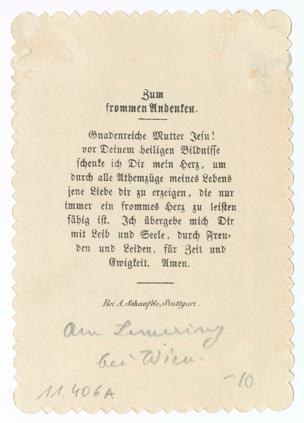 Zum
frommen Andenken.
Gnadenreiche Mutter Jesu!
vor Deinem heiligen Bildnisse
schenke ich Dir mein Herz, um
durch alle Athemzüge meines Lebens
jene Liebe dir zu erzeigen, die nur
immer ein frommes Herz zu leisten
fähig ist. Ich übergebe mich Dir
mit Leib und Seele, durch Freu-
den und Leiden, für Zeit und
Ewigkeit. Amen.
Bei A. Schaufele, Stuttgart.
Am Semering
bei Wien.
11.406A
-10